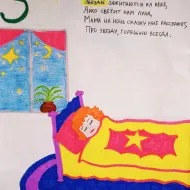 Звёзды зажигаются на небе,
Ярко светит нам луна,
Мама на ночь сказку мне расскажет,
Про звезду, горящую всегда.